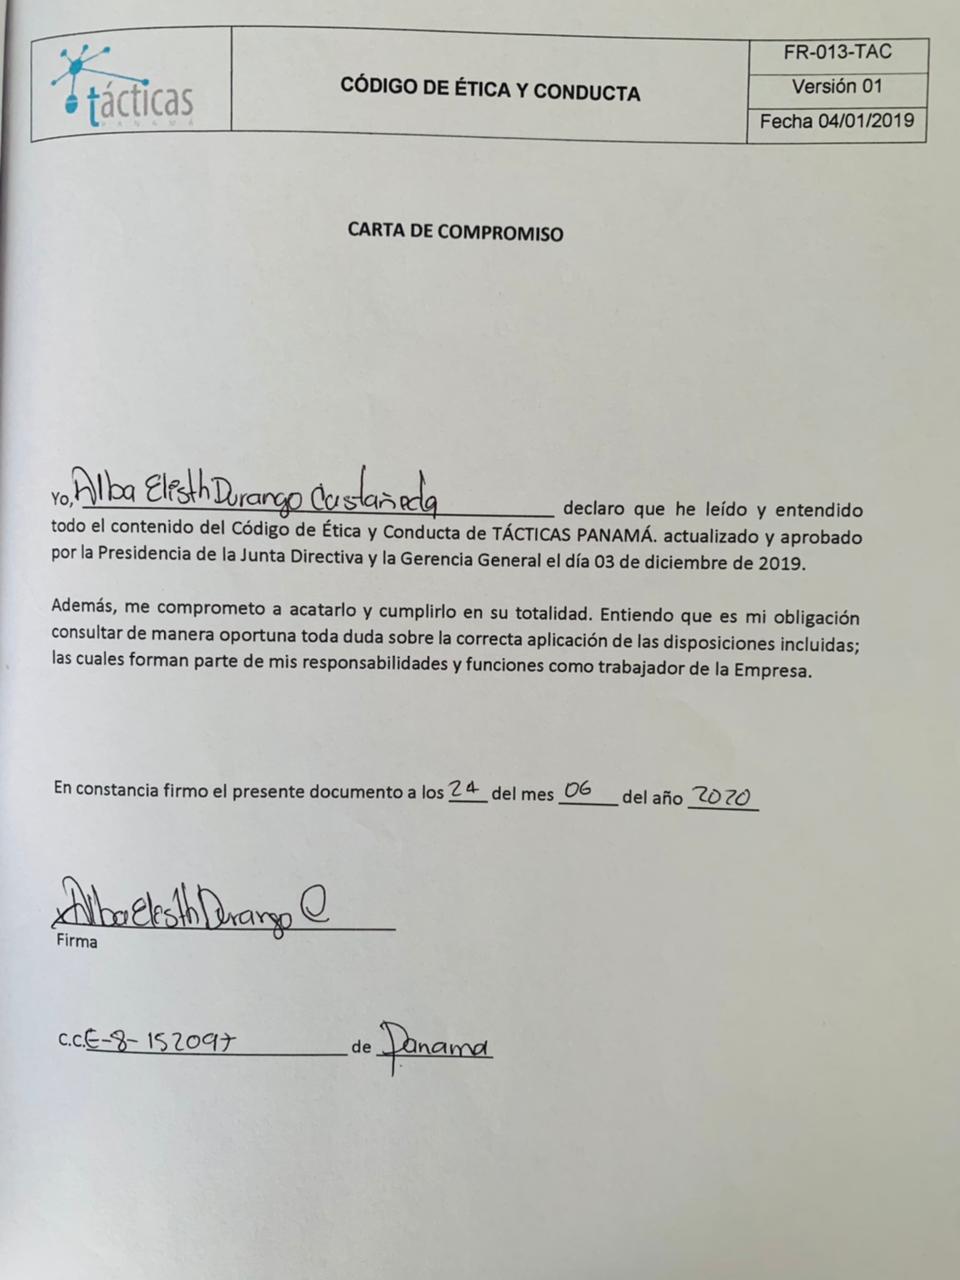 tácticas
PANAMÁ
CÓDIGO DE ÉTICA Y CONDUCTA
FR-013-TAC
Versión 01
Fecha 04/01/2019
CARTA DE COMPROMISO
Yo, Alba Elesth Durango Castañeda declaro que he leído y entendido
todo el contenido del Código de Ética y Conducta de TÁCTICAS PANAMÁ. actualizado y aprobado
por la Presidencia de la Junta Directiva y la Gerencia General el día 03 de diciembre de 2019.
Además, me comprometo a acatarlo y cumplirlo en su totalidad. Entiendo que es mi obligación
consultar de manera oportuna toda duda sobre la correcta aplicación de las disposiciones incluidas;
las cuales forman parte de mis responsabilidades y funciones como trabajador de la Empresa.
En constancia firmo el presente documento a los 24 del mes 06 del año 2020
Alba Elesth Durango C
Firma
C.C. E-8-152097 de Panama